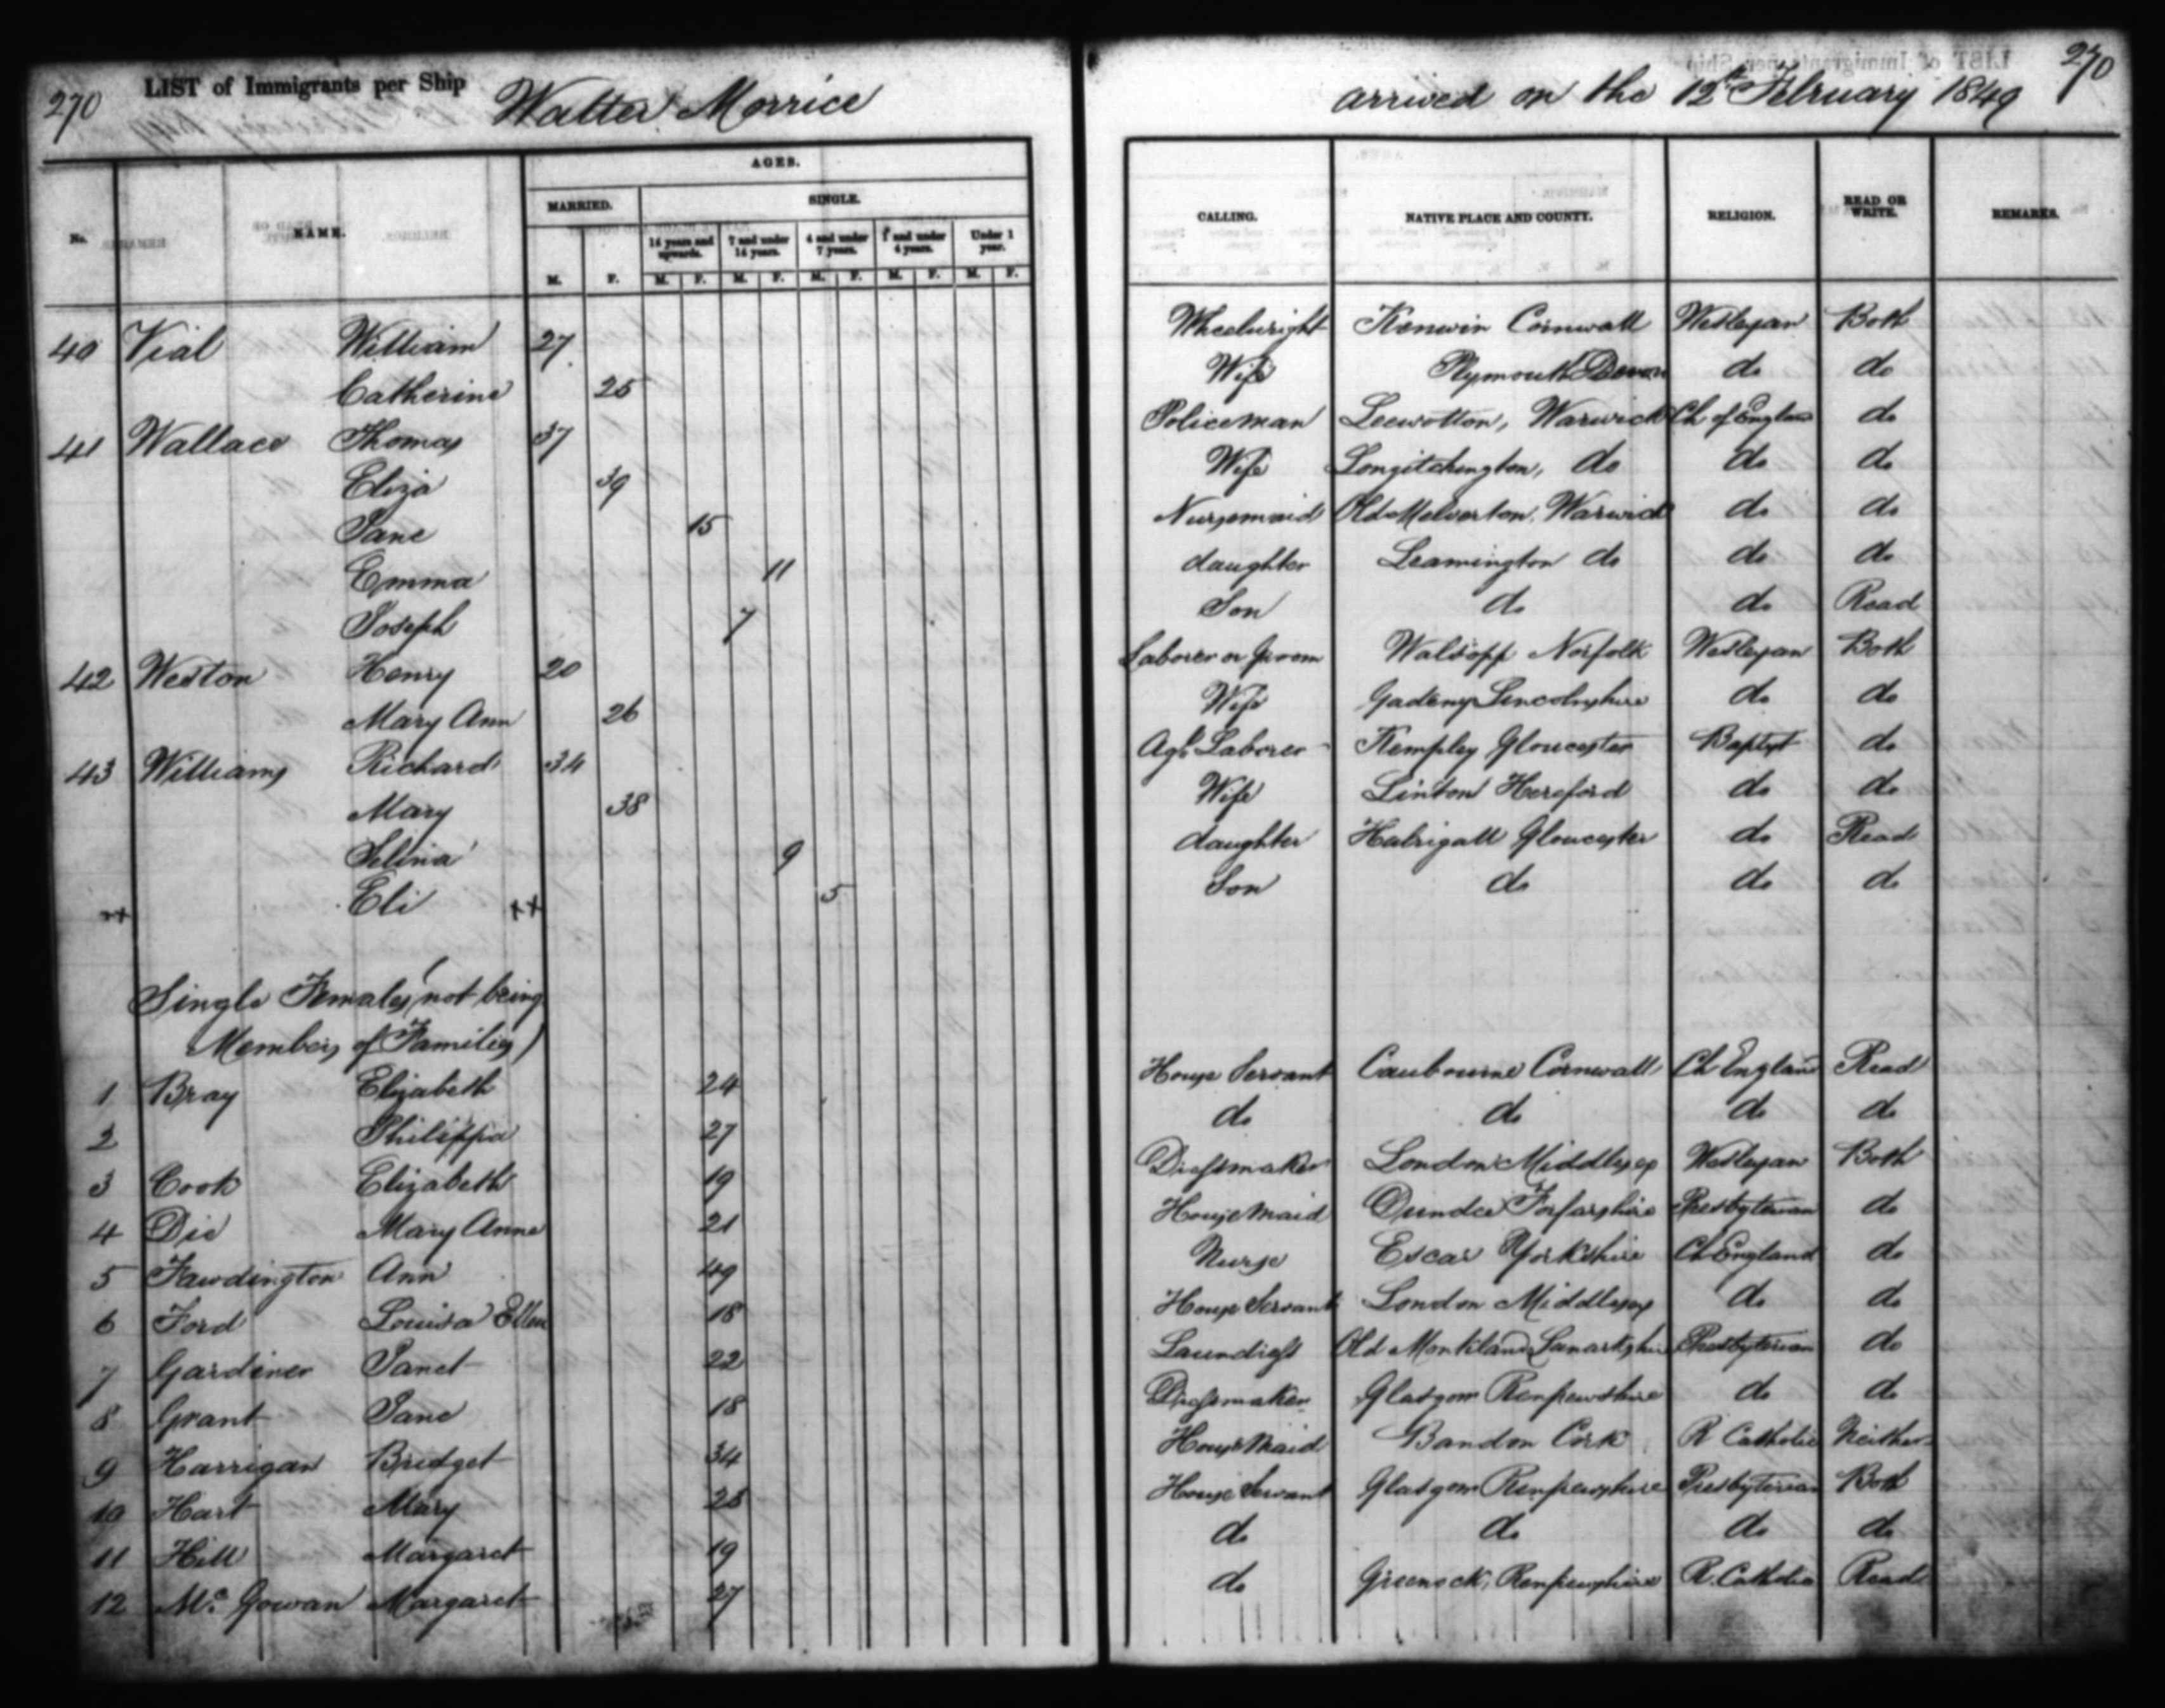 270 LIST of Immigrants per Ship Walter Morrice
arrived on the 12th February 1849 270
No. NAME. AGES.
MARRIED. SINGLE.
14 years and upwards. 7 and under 14 years. 4 and under 7 years. 1 and under 4 years. Under 1 year.
M. F. M. F. M. F. M. F. M. F. M. F.
CALLING. NATIVE PLACE AND COUNTY. RELIGION. READ OR WRITE. REMARKS.
40 Vial William 27 Wheelwright Kenwin Cornwall Wesleyan Both
Catherine 25 Wife Plymouth Devon do do
41 Wallace Thomas 37 Policeman Leewotton, Warwick Ch of England do
Eliza 39 Wife Longitchington, do do do
Jane 15 Nursemaid Old Melverton, Warwick do do
Emma 11 daughter Leamington do do do
Joseph 7 Son do do Read
42 Weston Henry 20 Laborer or Groom Walsopp Norfolk Wesleyan Both
Mary Ann 26 Wife Gadeny Lincolnshire do do
43 Williams Richard 34 Agl. Laborer Kempley Gloucester Baptist do
Mary 38 Wife Linton Hereford do do
Selina 9 daughter Halrigall Gloucester do Read
Eli 5 Son do do do
Single Females (not being
Members of Families)
1 Bray Elizabeth 24 House Servant Caubourne Cornwall Ch England Read
2 Philippa 27 do do do do
3 Cook Elizabeth 19 Dressmaker London Middlesex Wesleyan Both
4 Die Mary Anne 21 House Maid Dundee Forfarshire Presbyterian do
5 Fawdington Ann 49 Nurse Escar Yorkshire Ch England do
6 Ford Louisa Ellen 18 House Servant London Middlesex do do
7 Gardiner Janet 22 Laundress Old Monkland Lanarkshire Presbyterian do
8 Grant Jane 18 Dressmaker Glasgow Renfrewshire do do
9 Harrigan Bridget 34 House Maid Bandon Cork R Catholic Neither
10 Hart Mary 28 House Servant Glasgow Renfrewshire Presbyterian Both
11 Hill Margaret 19 do do do do
12 Mc. Gowan Margaret 27 do Greenock, Renfrewshire R. Catholic Read